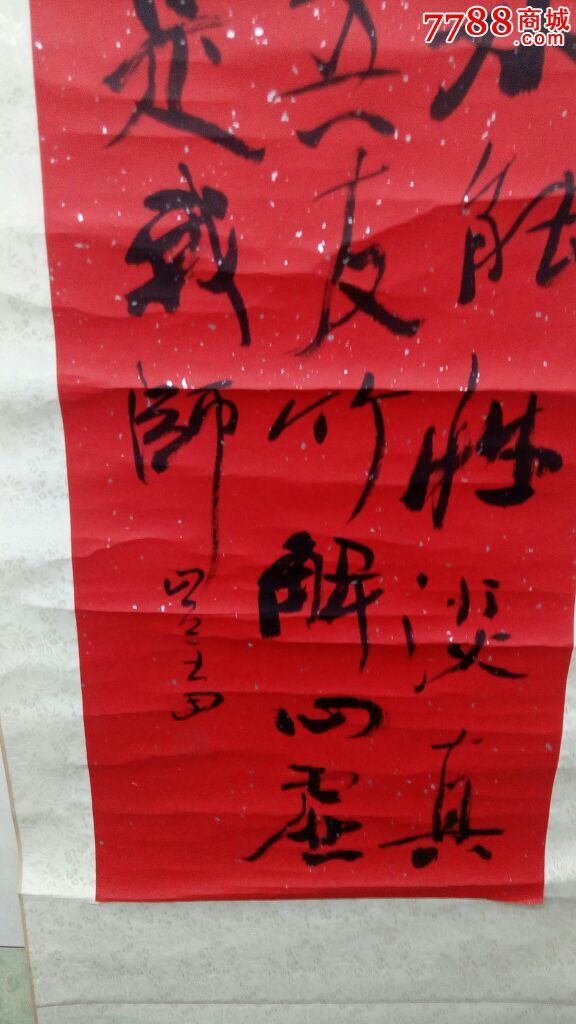 7788商城
.com
水能性淡真
吾友竹解心虚
是我師